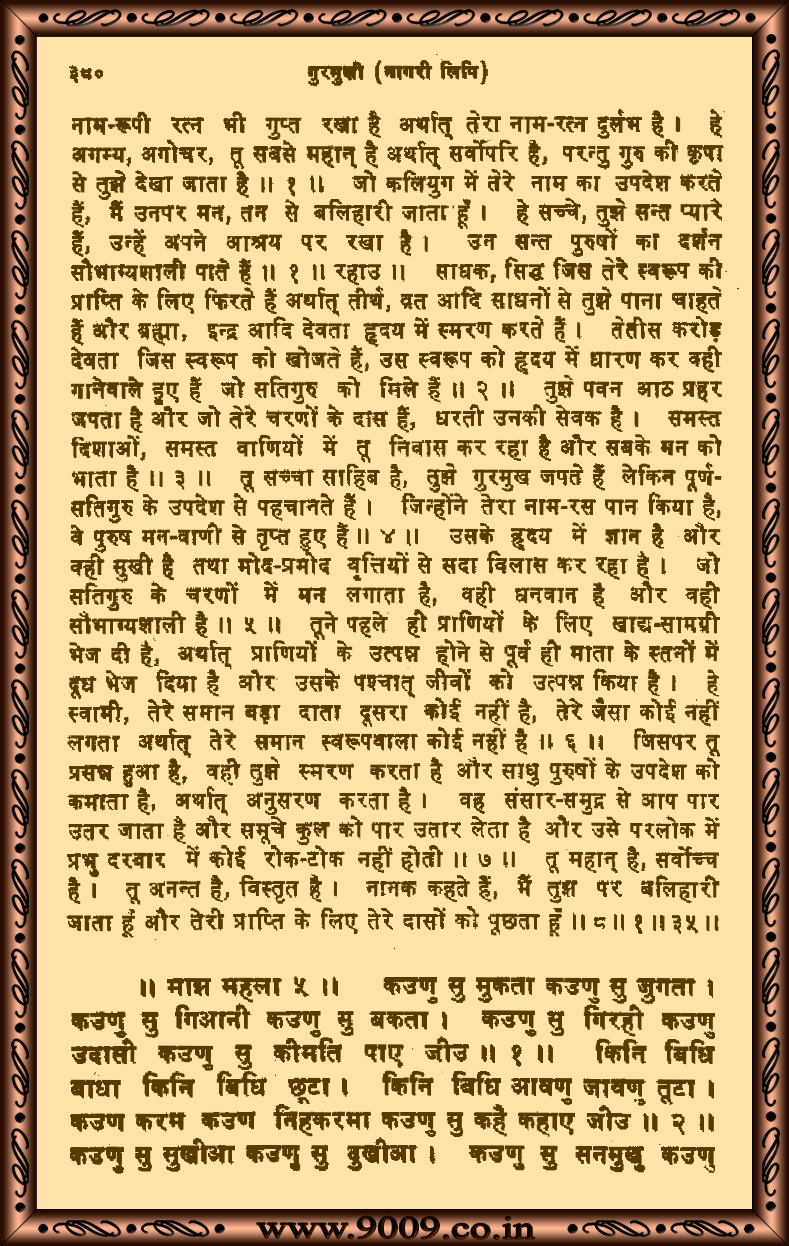 ३५० गुरमुखी (नागरी लिपि)
नाम-रूपी रत्न भी गुप्त रखा है अर्थात् तेरा नाम-रत्न दुर्लभ है । हे
अगम्य, अगोचर, तू सबसे महान् है अर्थात् सर्वोपरि है, परन्तु गुरु की कृपा
से तुझे देखा जाता है ॥ १ ॥ जो कलियुग में तेरे नाम का उपदेश करते
हैं, मैं उनपर मन, तन से बलिहारी जाता हूँ । हे सच्चे, तुझे सन्त प्यारे
हैं, उन्हें अपने आश्रय पर रखा है । उन सन्त पुरुषों का दर्शन
सौभाग्यशाली पाते हैं ॥ १ ॥ रहाउ ॥ साधक, सिद्ध जिस तेरे स्वरूप की
प्राप्ति के लिए फिरते हैं अर्थात् तीर्थ, व्रत आदि साधनों से तुझे पाना चाहते
हैं और ब्रह्मा, इन्द्र आदि देवता हृदय में स्मरण करते हैं । तेतीस करोड़
देवता जिस स्वरूप को खोजते हैं, उस स्वरूप को हृदय में धारण कर वही
गानेवाले हुए हैं जो सतिगुरु को मिले हैं ॥ २ ॥ तुझे पवन आठ प्रहर
जपता है और जो तेरे चरणों के दास हैं, धरती उनकी सेवक है । समस्त
दिशाओं, समस्त वाणियों में तू निवास कर रहा है और सबके मन को
भाता है ॥ ३ ॥ तू सच्चा साहिब है, तुझे गुरमुख जपते हैं लेकिन पूर्ण-
सतिगुरु के उपदेश से पहचानते हैं । जिन्होंने तेरा नाम-रस पान किया है,
वे पुरुष मन-वाणी से तृप्त हुए हैं ॥ ४ ॥ उसके हृदय में ज्ञान है और
वही सुखी है तथा मोद-प्रमोद वृत्तियों से सदा विलास कर रहा है । जो
सतिगुरु के चरणों में मन लगाता है, वही धनवान है और वही
सौभाग्यशाली है ॥ ५ ॥ तूने पहले ही प्राणियों के लिए खाद्य-सामग्री
भेज दी है, अर्थात् प्राणियों के उत्पन्न होने से पूर्व ही माता के स्तनों में
दूध भेज दिया है और उसके पश्चात् जीवों को उत्पन्न किया है । हे
स्वामी, तेरे समान बड़ा दाता दूसरा कोई नहीं है, तेरे जैसा कोई नहीं
लगता अर्थात् तेरे समान स्वरूपवाला कोई नहीं है ॥ ६ ॥ जिसपर तू
प्रसन्न हुआ है, वही तुझे स्मरण करता है और साधु पुरुषों के उपदेश को
कमाता है, अर्थात् अनुसरण करता है । वह संसार-समुद्र से आप पार
उतर जाता है और समूचे कुल को पार उतार लेता है और उसे परलोक में
प्रभु दरबार में कोई रोक-टोक नहीं होती ॥ ७ ॥ तू महान् है, सर्वोच्च
है । तू अनन्त है, विस्तृत है । नानक कहते हैं, मैं तुझ पर बलिहारी
जाता हूँ और तेरी प्राप्ति के लिए तेरे दासों को पूछता हूँ ॥ ८ ॥ १ ॥ ३५ ॥
॥ माझ महला ५ ॥ कउणु सु मुकता कउणु सु जुगता ।
कउणु सु गिआनी कउणु सु बकता । कउणु सु गिरही कउणु
उदासी कउणु सु कीमति पाए जीउ ॥ १ ॥ किनि बिधि
बाधा किनि बिधि छूटा । किनि बिधि आवणु जावणु तूटा ।
कउण करम कउण निहकरमा कउणु सु कहै कहाए जीउ ॥ २ ॥
कउणु सु सुखीआ कउणु सु दुखीआ । कउणु सु सनमुखु कउणु
www.9009.co.in